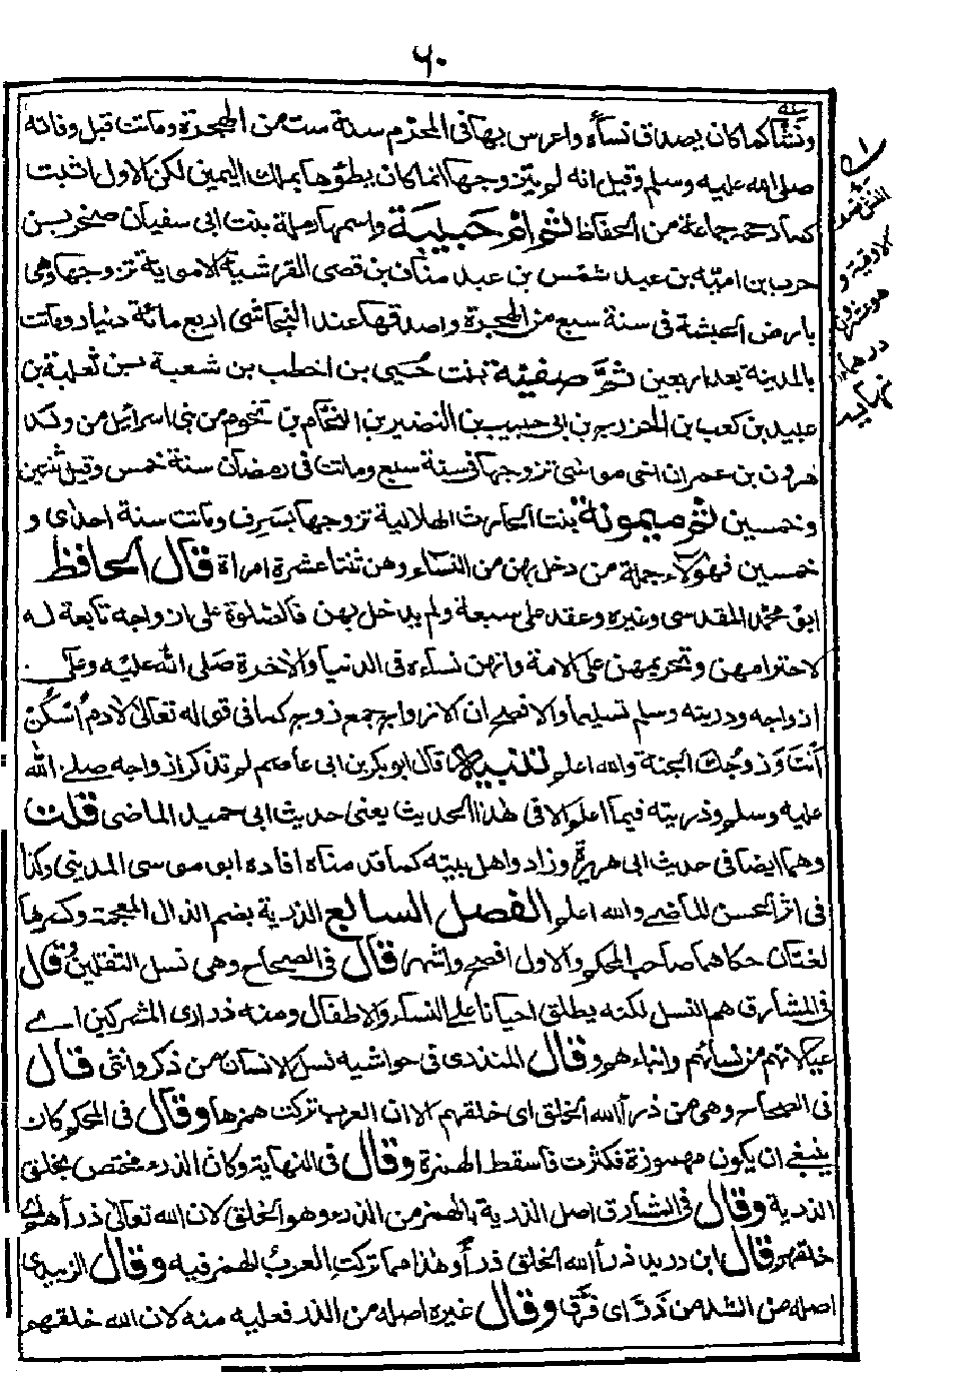 ٦٠
ونشا كما كان يصداق نساءه واعرس بها فى المحرم سنة ست من الهجرة وماتت قبل وفاته
صلى الله عليه وسلم وقيل انه لم يتزوجها انما كان يطؤها بملك اليمين لكن الاول اثبت
كما رجحه جماعة من الحفاظ ثم ام حبيبة واسمها رملة بنت ابى سفيان صخر بن
حرب بن امية بن عبد شمس بن عبد مناف بن قصى القرشية الاموية تزوجها وهى
بارض الحبشة فى سنة سبع من الهجرة واصدقها عند النجاشى اربع مائة دينار وماتت
بالمدينة بعد اربعين ثم صفية بنت حُيى بن اخطب بن شعبة بن ثعلبة بن
عبيد بن كعب بن الخزرج بن ابى حبيب بن النضير بن النحام بن تحوم من بنى اسرائيل من ولد
هرون بن عمران اخى موسى تزوجها فى سنة سبع وماتت فى رمضان سنة خمس وقيل ثنتين
وخمسين ثم ميمونة بنت الحارث الهلالية تزوجها بسَرِف وماتت سنة احدى و
خمسين فهؤلاء جملة من دخل بهن من النساء وهن ثنتا عشرة امراة قال الحافظ
ابو محمد المقدسى وغيره وعقد على سبعة ولم يدخل بهن فالصلوة على ازواجه تابعة له
لاحترامهن وتحريمهن على الامة وانهن نساءه فى الدنيا والاخرة صلى الله عليه وعلى
ازواجه وذريته وسلم تسليما والافصح ان الازواج جمع زوج كما فى قوله تعالى لادم اسْكُنْ
أنتَ وَزوجُك الجنة والله اعلم تنبيه قال ابو بكر بن ابى عاصم لم تذكر ازواجه صلى الله
عليه وسلم وذريته فيما اعلم الا فى هذا الحديث يعنى حديث ابى حميد الماضى قلت
وهما ايضا فى حديث ابى هريرة وزاد واهل بيته كما قدمناه افاده ابو موسى المدينى وكذا
فى اثر الحسن الماضى والله اعلم الفصل السابع الذرية بضم الذال المعجمة وكسرها
لغتان حكاهما صاحب المحكم والاول افصح واشهر قال فى الصحاح وهى نسل الثقلين وقال
فى المشارق هم النسل لكنه يطلق احيانا على النساء والاطفال ومنه ذرارى المشركين اى
عيالاتهم من نسائهم وابناءهم وقال المنذرى فى حواشيه نسل الانسان من ذكر وانثى قال
فى الصحاح وهى من ذرأ الله الخلق اى خلقهم الا ان العرب تركت همزها وقال فى المحكم كان
ينبغى ان يكون مهموزة فكثرت فاسقط الهمزة وقال فى النهاية وكان الذرء مختص بخلق
الذرية وقال فى المشارق اصل الذرية بالهمز من الذرء وهو الخلق لان الله تعالى ذرأهم اى
خلقهم وقال ابن دريد ذرأ الله الخلق ذرأ وهذا مما تركت العرب الهمز فيه وقال الزبيدى
اصله من الشد من ذَرَّ اى فرَّق وقال غيره اصله من الذر فعلية منه لان الله خلقهم
النش نصف
الاوقية و
هو عشرون
درهما
نهايه